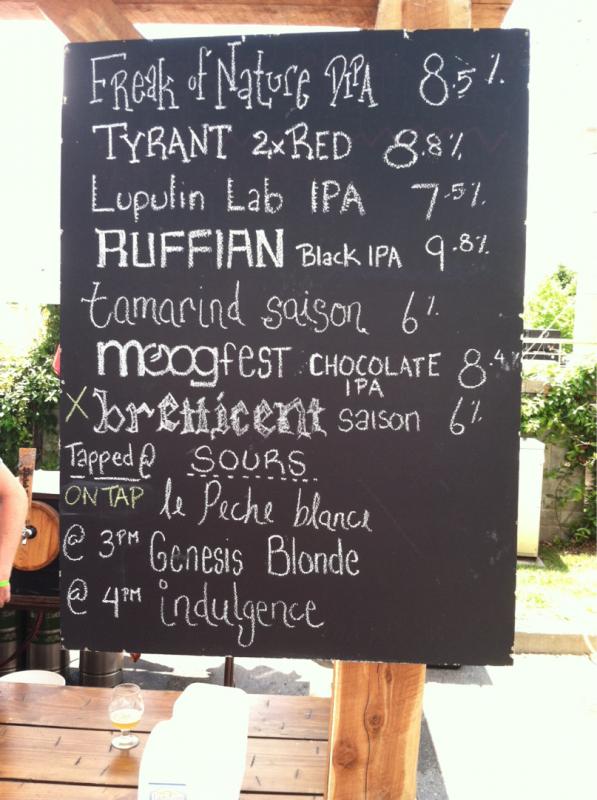 Freak of Nature DIPA 8.5%
TYRANT 2xRED 8.8%
Lupulin Lab IPA 7.5%
RUFFIAN Black IPA 9.8%
tamarind saison 6%
moogfest CHOCOLATE IPA 8.4%
X bretticent saison 6%
Tapped @ SOURS
ON TAP le Pêche blanc
@ 3PM Genesis Blonde
@ 4PM indulgence